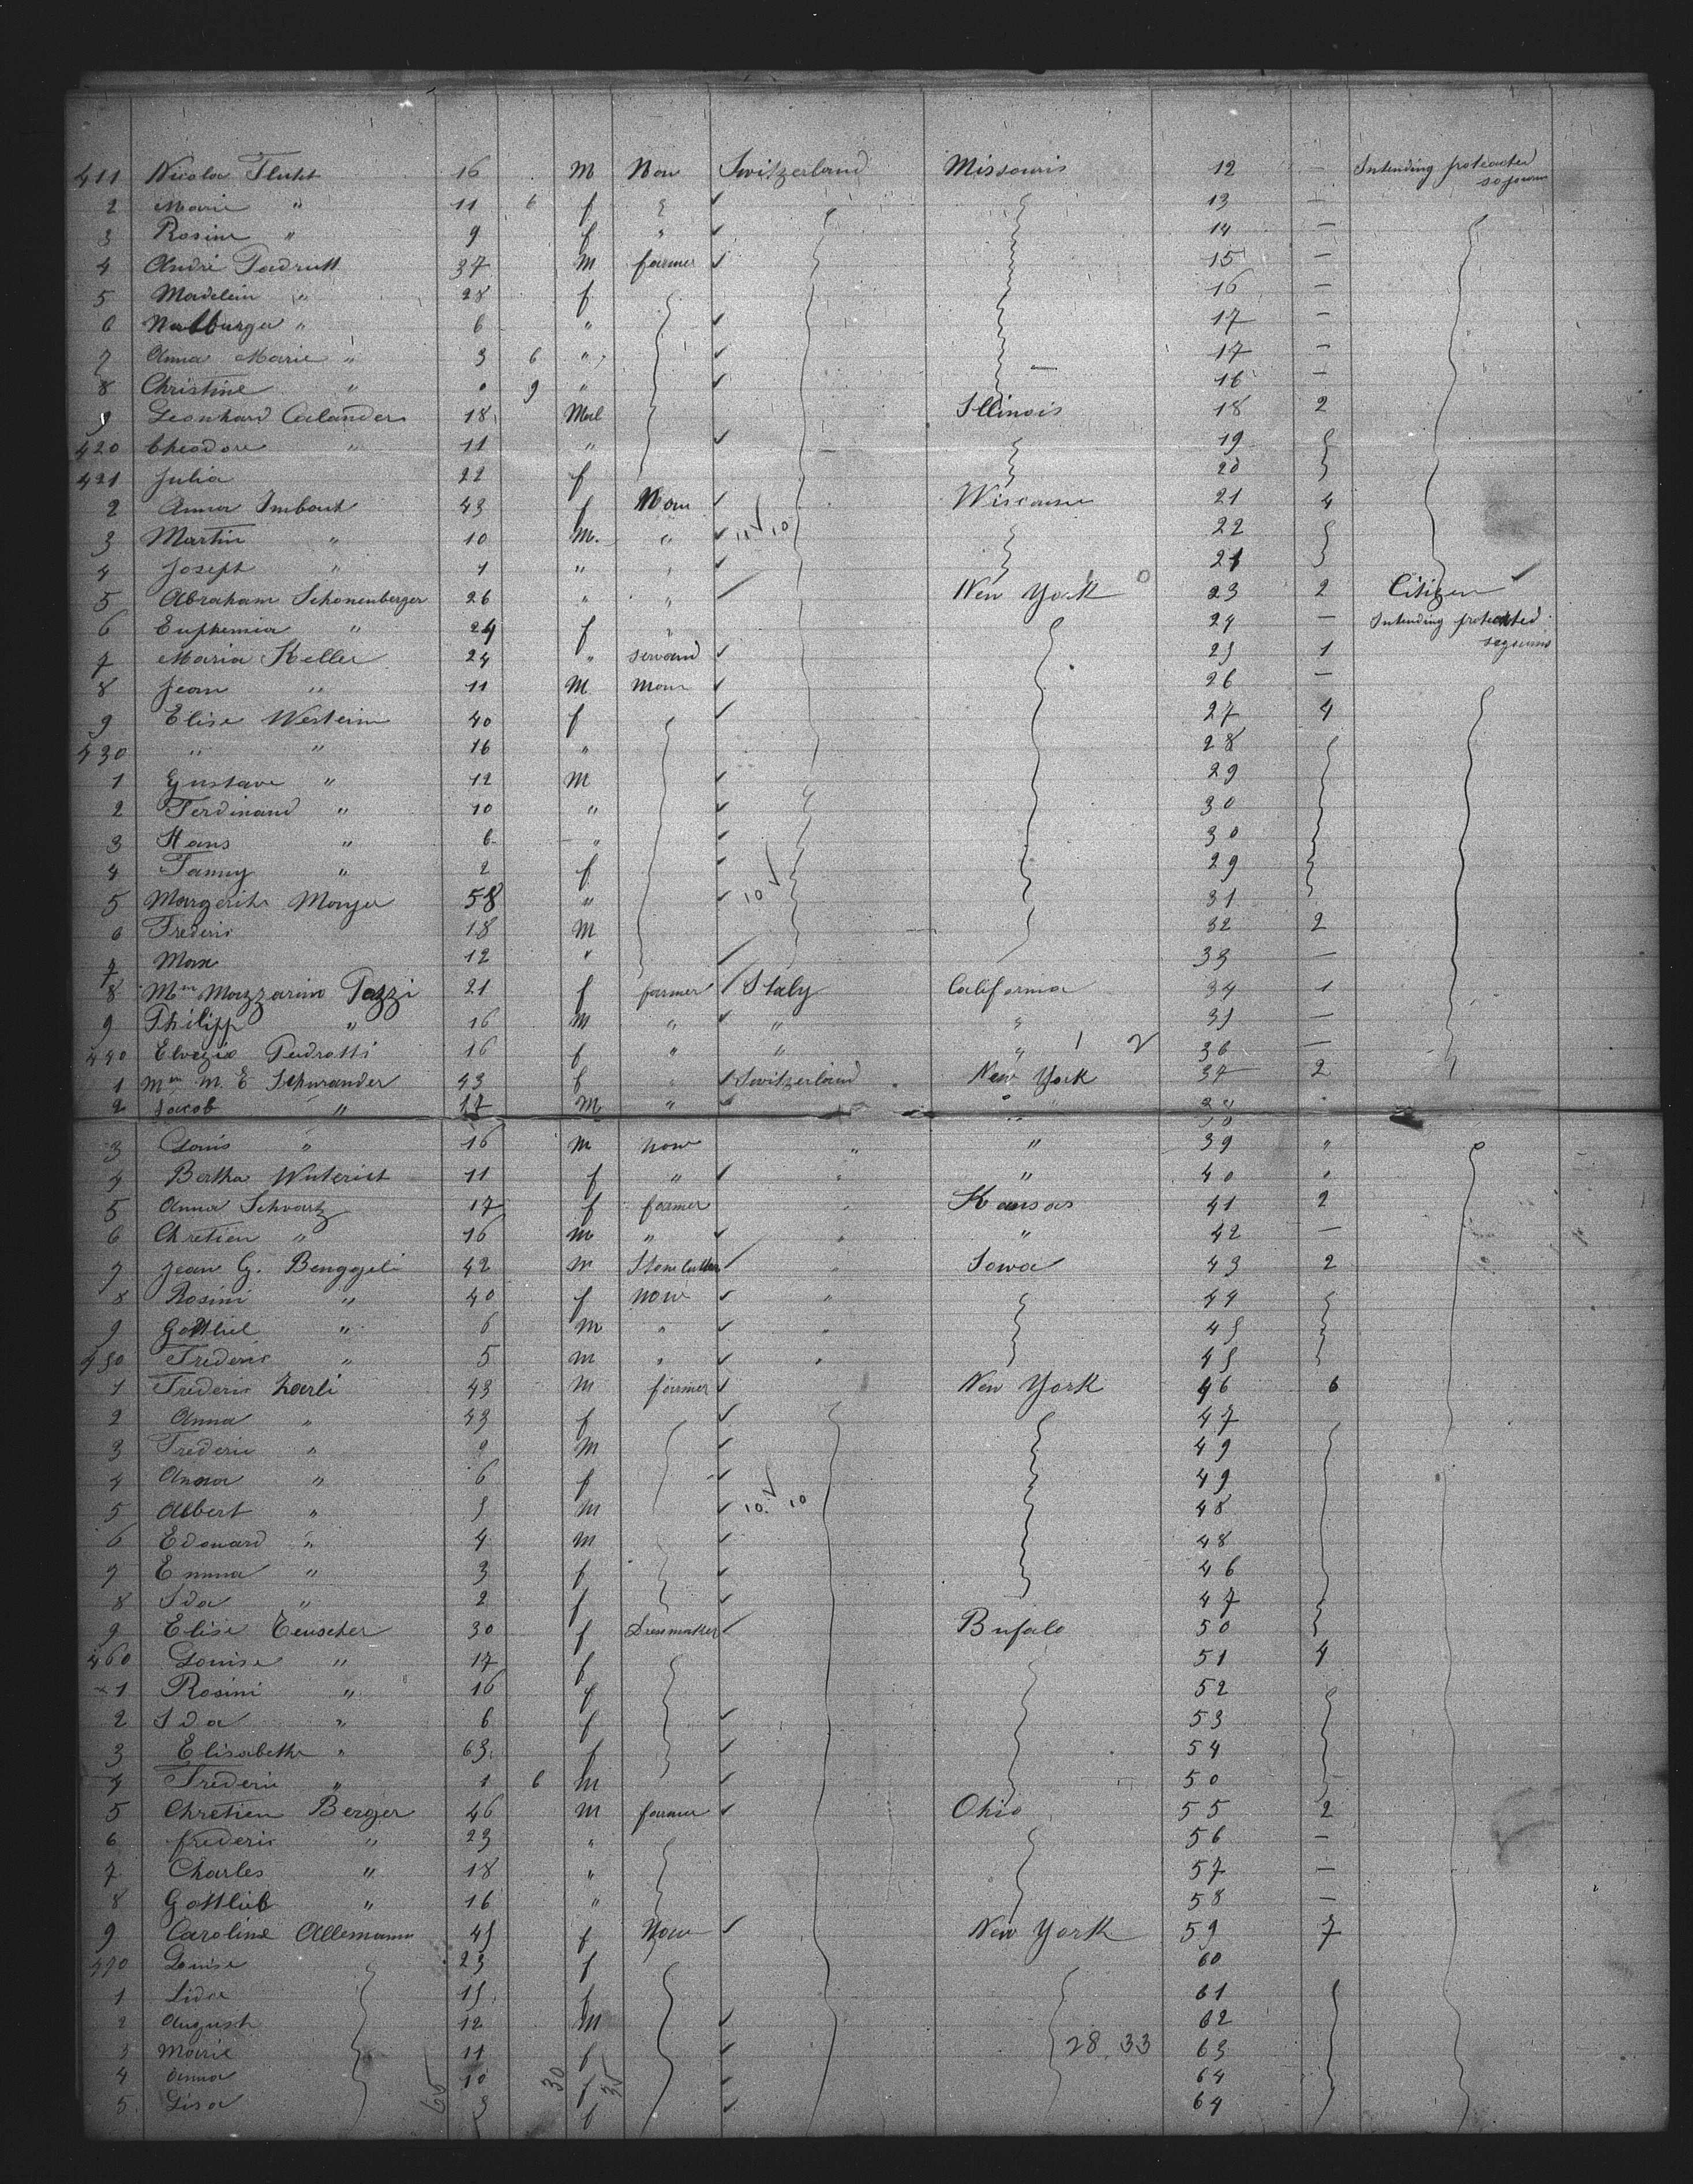 411 Nicola Flutsch 16 M Non Switzerland Missouris 12 — Intending protracted sojourn
2 Marie " 11 6 f 13 —
3 Rosine " 9 f " 14 —
4 André Padrutt 37 M farmer 15 —
5 Madelein " 28 f 16 —
6 Walburga " 6 " 17 —
7 Anna Marie " 3 6 " 17 —
8 Christine " 0 9 " 16 —
9 Leonhard Calander 18 Mal Illinois 18 2
420 Theodore " 11 " 19
421 Julia 22 f 20
2 Anna Imboud 43 f Non Wisconsin 21 4
3 Martin " 10 M. " 11 10 22
4 Joseph " 1 " 21
5 Abraham Schonenberger 26 " " New York 23 2 Citizen
6 Euphemia " 24 f " 24 — Intending protected sojourns
7 Maria Keller 24 " servand 25 1
8 Jean " 11 M Non 26 —
9 Elise Westeim 40 f 27 4
430 " " 16 " 28
1 Gustave " 12 M 29
2 Ferdinand " 10 " 30
3 Hans " 6 " 30
4 Fanny " 2 f 29
5 Margerithe Monger 58 " 10 31
6 Frederic 18 M 32 2
7 Max 12 " 33 —
8 Mm Mazzarino Pozzi 21 f farmer Italy California 34 1
9 Philipp " 16 M " " " 35 —
440 Elvezia Pedrotti 16 f " " " 1 2 36 —
1 Mm M. E Schwander 43 f " Switzerland New York 37 2
2 Jacob " 17 M "
3 Louis " 16 M Non " " 39 "
4 Bertha Winterist 11 f " " " 40 "
5 Anna Schvartz 17 f farmer " Kansas 41 2
6 Chretien " 16 M " " " 42 —
7 Jean G. Benggeli 42 M Stonecutter " Iowa 43 2
8 Rosini " 40 f Non " 44
9 Gottlieb " 6 M " " 45
450 Frederic " 5 M " " 45
1 Frederic Zarli 43 M farmer New York 46 6
2 Anna " 43 f 47
3 Frederic " 9 M 49
4 Anna " 6 f 49
5 Albert " 5 M 10 10 48
6 Edouard " 4 M 48
7 Emma " 3 f 46
8 Ida " 2 f 47
9 Elise Teuscher 30 f Dressmaker Bufalo 50
460 Louise " 17 f 51 4
1 Rosini " 16 f 52
2 Ida " 6 f 53
3 Elisabeth " 63 f 54
4 Frederic " 1 6 M 50
5 Chretien Berger 46 M farmer Ohio 55 2
6 frederic " 23 " 56 —
7 Charles " 18 " 57 —
8 Gottlieb " 16 " 58 —
9 Caroline Allemann 45 f Non New York 59 7
470 Louise 23 f 60
1 Lidia 15 f 61
2 August 12 M 62
3 Marie 11 f 28 33 63
4 Anna 10 f 64
5 Lisa 3 f 64
65 30 35